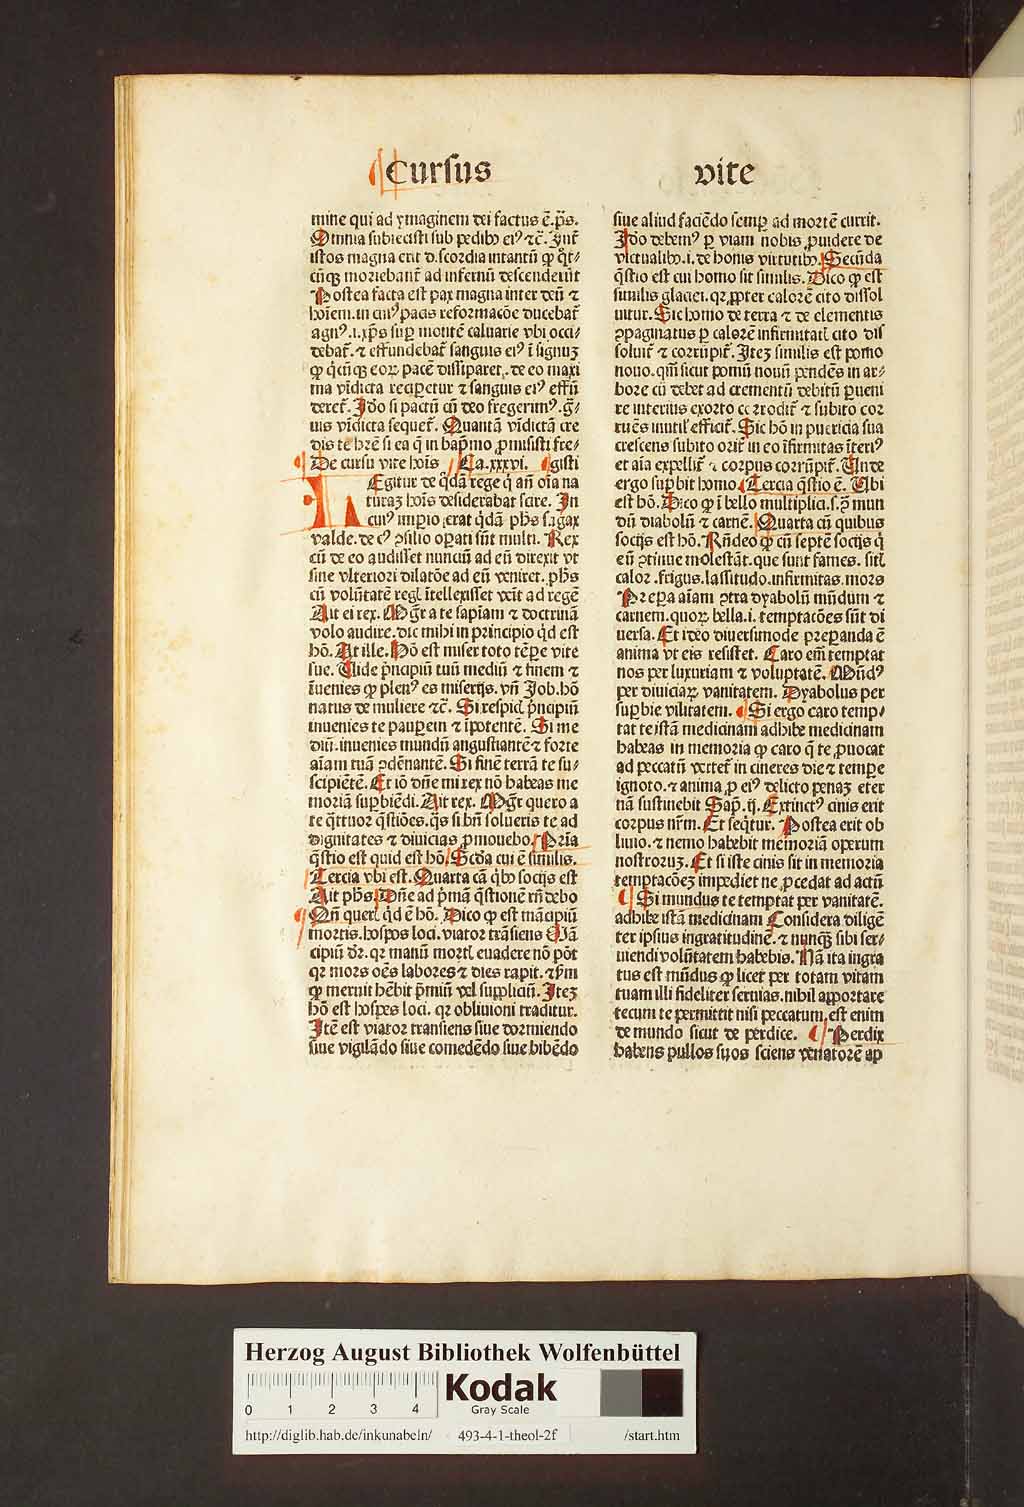 Cursus vite
mine qui ad ymaginem dei factus ē. p̄s.
Omnia subiecisti sub pedibꝫ eiꝰ ⁊c̄. Int̄
istos magna erit discordia intantū ꝙ q̄t⸗
cūqꝫ moriebant̄ ad infernū descenderūt
Postea facta est pax magna inter deū ⁊
hoīem. in cuiꝰ pacis reformacōe ducebat̄
agnꝰ .i. xp̄s suꝑ montē caluarie vbi occi⸗
debat̄. ⁊ effundebat̄ sanguis eiꝰ ī signuꝫ
ꝙ q̄cūqꝫ eoꝝ pacē dissiparet. de eo maxi
ma vīdicta reciꝑetur ⁊ sanguis eiꝰ effū
deret̄. Ido si pactū cū deo fregerimꝰ. ḡ⸗
uis vīdicta sequet̄. Quantā vīdictā cre
dis te hr̄e si ea q̄ in bap̄mo ꝓmisisti fre⸗
De cursu vite hoīs Ca. xxxvi. gisti
Legitur de q̄dā rege q̇ an̄ oīa na
turaꝫ hoīs desiderabat scire. In
cuiꝰ imperio erat q̄dā ph̄s sagax
valde. de cꝰ ꝯsilio oꝑati sūt multi. Rex
cū de eo audisset nunciū ad eū direxit vt
sine vlteriori dilatōe ad eū veniret. ph̄s
cū volūtatē regꝭ ītellexisset venit ad regē
Ait ei rex. Mḡr a te sapīam ⁊ doctrinā
volo audire. dic mihi in principio q̇d est
hō. At ille. Hō est miser toto tēꝑe vite
sue. Uide p̄ncipiū tuū mediū ⁊ finem ⁊
īuenies ꝙ plenꝰ es miserijs. vn̄ Job. hō
natus de muliere ⁊c̄. Si respicis p̄ncipiū
inuenies te pauꝑem ⁊ īpotentē. Si me
diū. inuenies mundū angustiantē ⁊ forte
aīam tuā ꝯdēnantē. Si finē terrā te su⸗
scipiētē. Et iō dn̄e mi rex nō habeas me
moriā suꝑbiēdi. Ait rex. Mḡr quero a
te q̄ttuor q̄stiōes. q̄s si bn̄ solueris te ad
dignitates ⁊ diuicias ꝓmouebo. Prīa
q̄stio est quid est hō. Scd̄a cui ē similis.
Tercia vbi est. Quarta cū q̇bꝫ socijs est
Ait ph̄s. Dn̄e ad p̄mā q̄stionē rn̄debo
Qn̄ querꝭ q̇d ē hō. Dico ꝙ est mācipiū
mortis. hospes loci. viator trāsiens Mā
cipiū dr̄. qꝛ manū mortꝭ euadere nō pōt
qꝛ mors oēs labores ⁊ dies rapit. ⁊ ẜm
ꝙ meruit hēbit p̄miū vel suppliciū. Iteꝫ
hō est hospes loci. qꝛ obliuioni traditur.
Itē est viator transiens siue dormiendo
siue vigilādo siue comedēdo siue bibēdo
siue aliud faciēdo semꝑ ad mortē currit.
Ido debemꝰ ꝑ viam nobis ꝓuidere de
victualibꝫ .i. de bonis virtutibꝫ. Secūda
q̄stio est cui homo sit similis. Dico ꝙ est
similis glaciei. qꝛ ꝓpter calorē cito dissol
uitur. Sic homo de terra ⁊ de elementis
ꝯpaginatus ꝑ calorē infirmitatꝭ cito dis
soluit̄ ⁊ corrūpit̄. Iteꝫ similis est pomo
nouo. qm̄ sicut pomū nouū pendēs in ar⸗
bore cū debet ad crementū debitū ꝑueni
re interius exorto corrodit̄ ⁊ subito cor
ruēs inutilꝭ efficit̄. Sic hō in puericia sua
crescens subito orit̄ in eo īfirmitas īteriꝰ
et aīa expellit̄ ⁊ corpus corrūpit̄. Unde
ergo suꝑbit homo. Tercia q̄stio ē. Ubi
est hō. Dico ꝙ ī bello multiplici .s. ꝯ̄ mun
dū diabolū ⁊ carnē. Quarta cū quibus
socijs est hō. Rn̄deo ꝙ cū septē socijs q̇
eū ꝯtinue molestāt. que sunt fames. sitꝭ
calor. frigus. lassitudo. infirmitas. mors
Prepa aīam ꝯtra dyabolū mūdum ⁊
carnem. quoꝝ bella .i. temptacōes sūt di
uersa. Et ideo diuersimode preꝑanda ē
anima vt eis resistet. Caro em̄ temptat
nos per luxuriam ⁊ voluptatē. Mūdꝰ
per diuiciaꝝ vanitatem. Dyabolus per
suꝑbie vilitatem. Si ergo caro temp⸗
tat te istā medicinam adhibe medicinam
habeas in memoria ꝙ caro q̄ te ꝓuocat
ad peccatū vertet̄ in cineres die ⁊ tempe
ignoto. ⁊ anima ꝓ eiꝰ delicto penaꝫ eter
nā sustinebit Sap̄. ij. Extinctꝰ cinis erit
corpus nr̄m. Et seq̄tur. Postea erit ob
liuio. ⁊ nemo habebit memoriā operum
nostroruꝫ. Et si iste cinis sit in memoria
temptacōeꝫ impediet ne ꝓcedat ad actū
Si mundus te temptat per vanitatē.
adhibe istā medicinam Considera diligē
ter ipsius ingratitudinē. ⁊ nunqꝫ sibi ser⸗
uiendi volūtatem habebis. Nā ita ingra
tus est mūdus ꝙ licet per totam vitam
tuam illi fideliter seruias. nihil apportare
tecum te permittit nisi peccatum. est enim
de mundo sicut de perdice. Perdix
habens pullos suos sciens venatorē ap
Herzog August Bibliothek Wolfenbüttel
0 1 2 3 4
Kodak
Gray Scale
http://diglib.hab.de/inkunabeln/ 493-4-1-theol-2f /start.htm